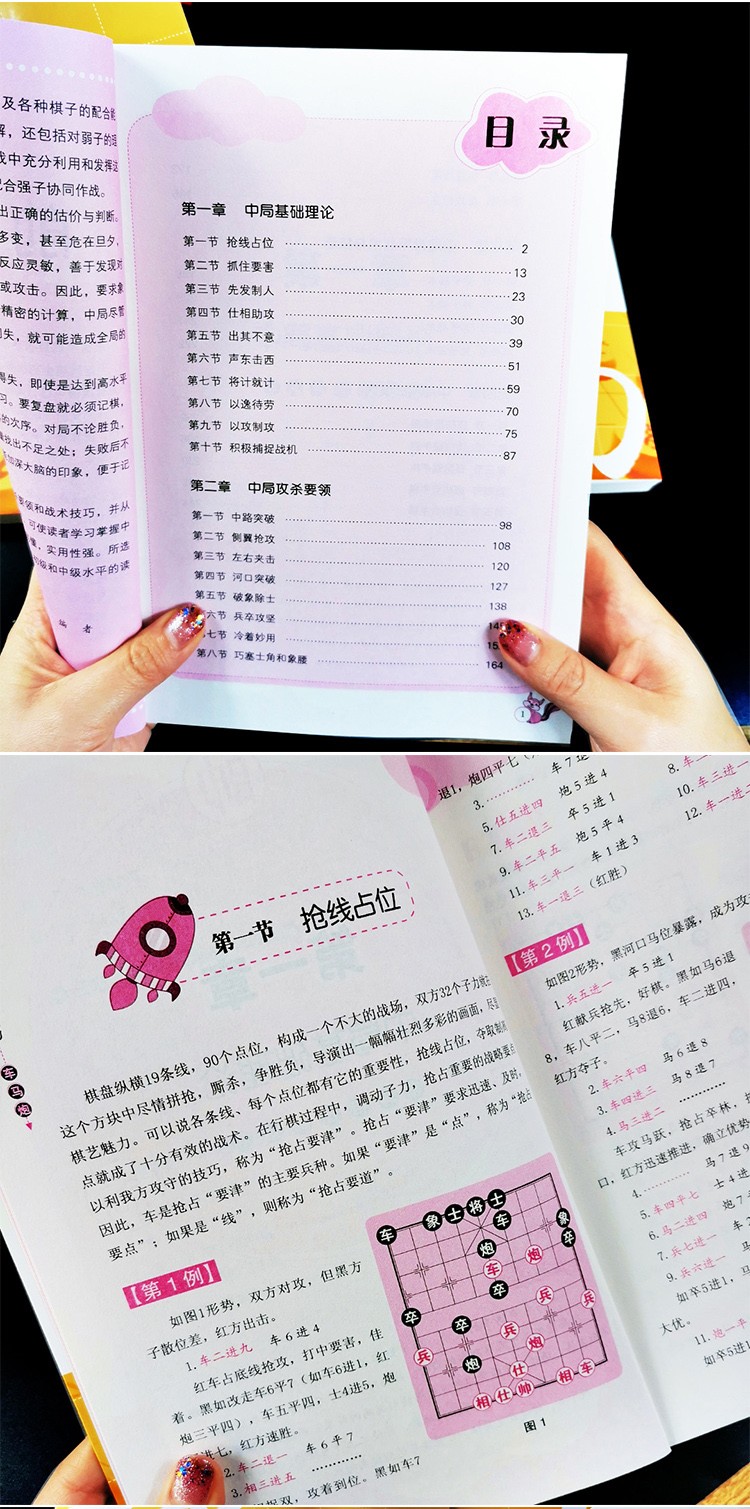 及各种棋子的配合能
解，还包括对弱子的理
战中充分利用和发挥这
配合强子协同作战。
出正确的估价与判断。
多变，甚至危在旦夕，
反应灵敏，善于发现对
或攻击。因此，要求象
精密的计算，中局尽管
失，就可能造成全局的
得失，即使是达到高水平
习。要复盘就必须记棋，
的次序。对局不论胜负，
找出不足之处；失败后不
加深大脑的印象，便于记
要领和战术技巧，并从
可使读者学习掌握中
懂，实用性强。所选
初级和中级水平的读
编 者
目录
第一章 中局基础理论
第一节 抢线占位 2
第二节 抓住要害 13
第三节 先发制人 23
第四节 仕相助攻 30
第五节 出其不意 39
第六节 声东击西 51
第七节 将计就计 59
第八节 以逸待劳 70
第九节 以攻制攻 75
第十节 积极捕捉战机 87
第二章 中局攻杀要领
第一节 中路突破 98
第二节 侧翼抢攻 108
第三节 左右夹击 120
第四节 河口突破 127
第五节 破象除士 138
六节 兵卒攻坚
七节 冷着妙用
第八节 巧塞士角和象腰 164
1
车马炮
第一节 抢线占位
棋盘纵横19条线，90个点位，构成一个不大的战场，双方32个子力
这个方块中尽情拼抢，厮杀，争胜负，导演出一幅幅壮烈多彩的画面，尽显
棋艺魅力。可以说各条线、每个点位都有它的重要性，抢线占位，夺取制
点就成了十分有效的战术。在行棋过程中，调动子力，抢占重要的战略要
以利我方攻守的技巧，称为“抢占要津”。抢占“要津”要求迅速、及时，
因此，车是抢占“要津”的主要兵种。如果“要津”是“点”，称为“抢占
要点”；如果是“线”，则称为“抢占要道”。
【第1例】
如图1形势，双方对攻，但黑方
子散位差，红方出击。
1.车二进九 车6进4
红车占底线抢攻，打中要害，佳
着。黑如改走车6平7（如车6进1，红
炮三平四），车五平四，士4进5，炮
进七，红方速胜。
2.车二退一 车6平7
3.相三进五 …………
捉双，攻着到位。黑如车7
车 象 士 将 士
车 象
炮 卒
车 炮
卒 兵 兵
卒 卒 兵
兵 炮 炮
仕 相 车
相 仕 帅
图1
退1，炮四平七
3.………… 车7退
5.仕五进四 炮5进4
7.车二退三 卒5进1
9.车二平五 炮5平4
11.车三平一 车1进3
13.车一退三（红胜）
8.车一
10.车三进一
12.车一进二
【第2例】
如图2形势，黑河口马位暴露，成为攻
1.兵五进一 卒5进1
红献兵抢先，好棋。黑如马6退
8，车八平二，马8退6，车二进四，
红方夺子。
2.车六平四 马6退8
3.车四进三 马8退7
4.马三进二 …………
车攻马跃，抢占卒林，
口，红方迅速推进，确立优势
4.………… 马7退9
5.车四平七 士4进
6.马二进四 炮7
7.兵七进一
8.兵六进一 马
如卒5进1，马
大优。
11.炮一平
如卒5进1